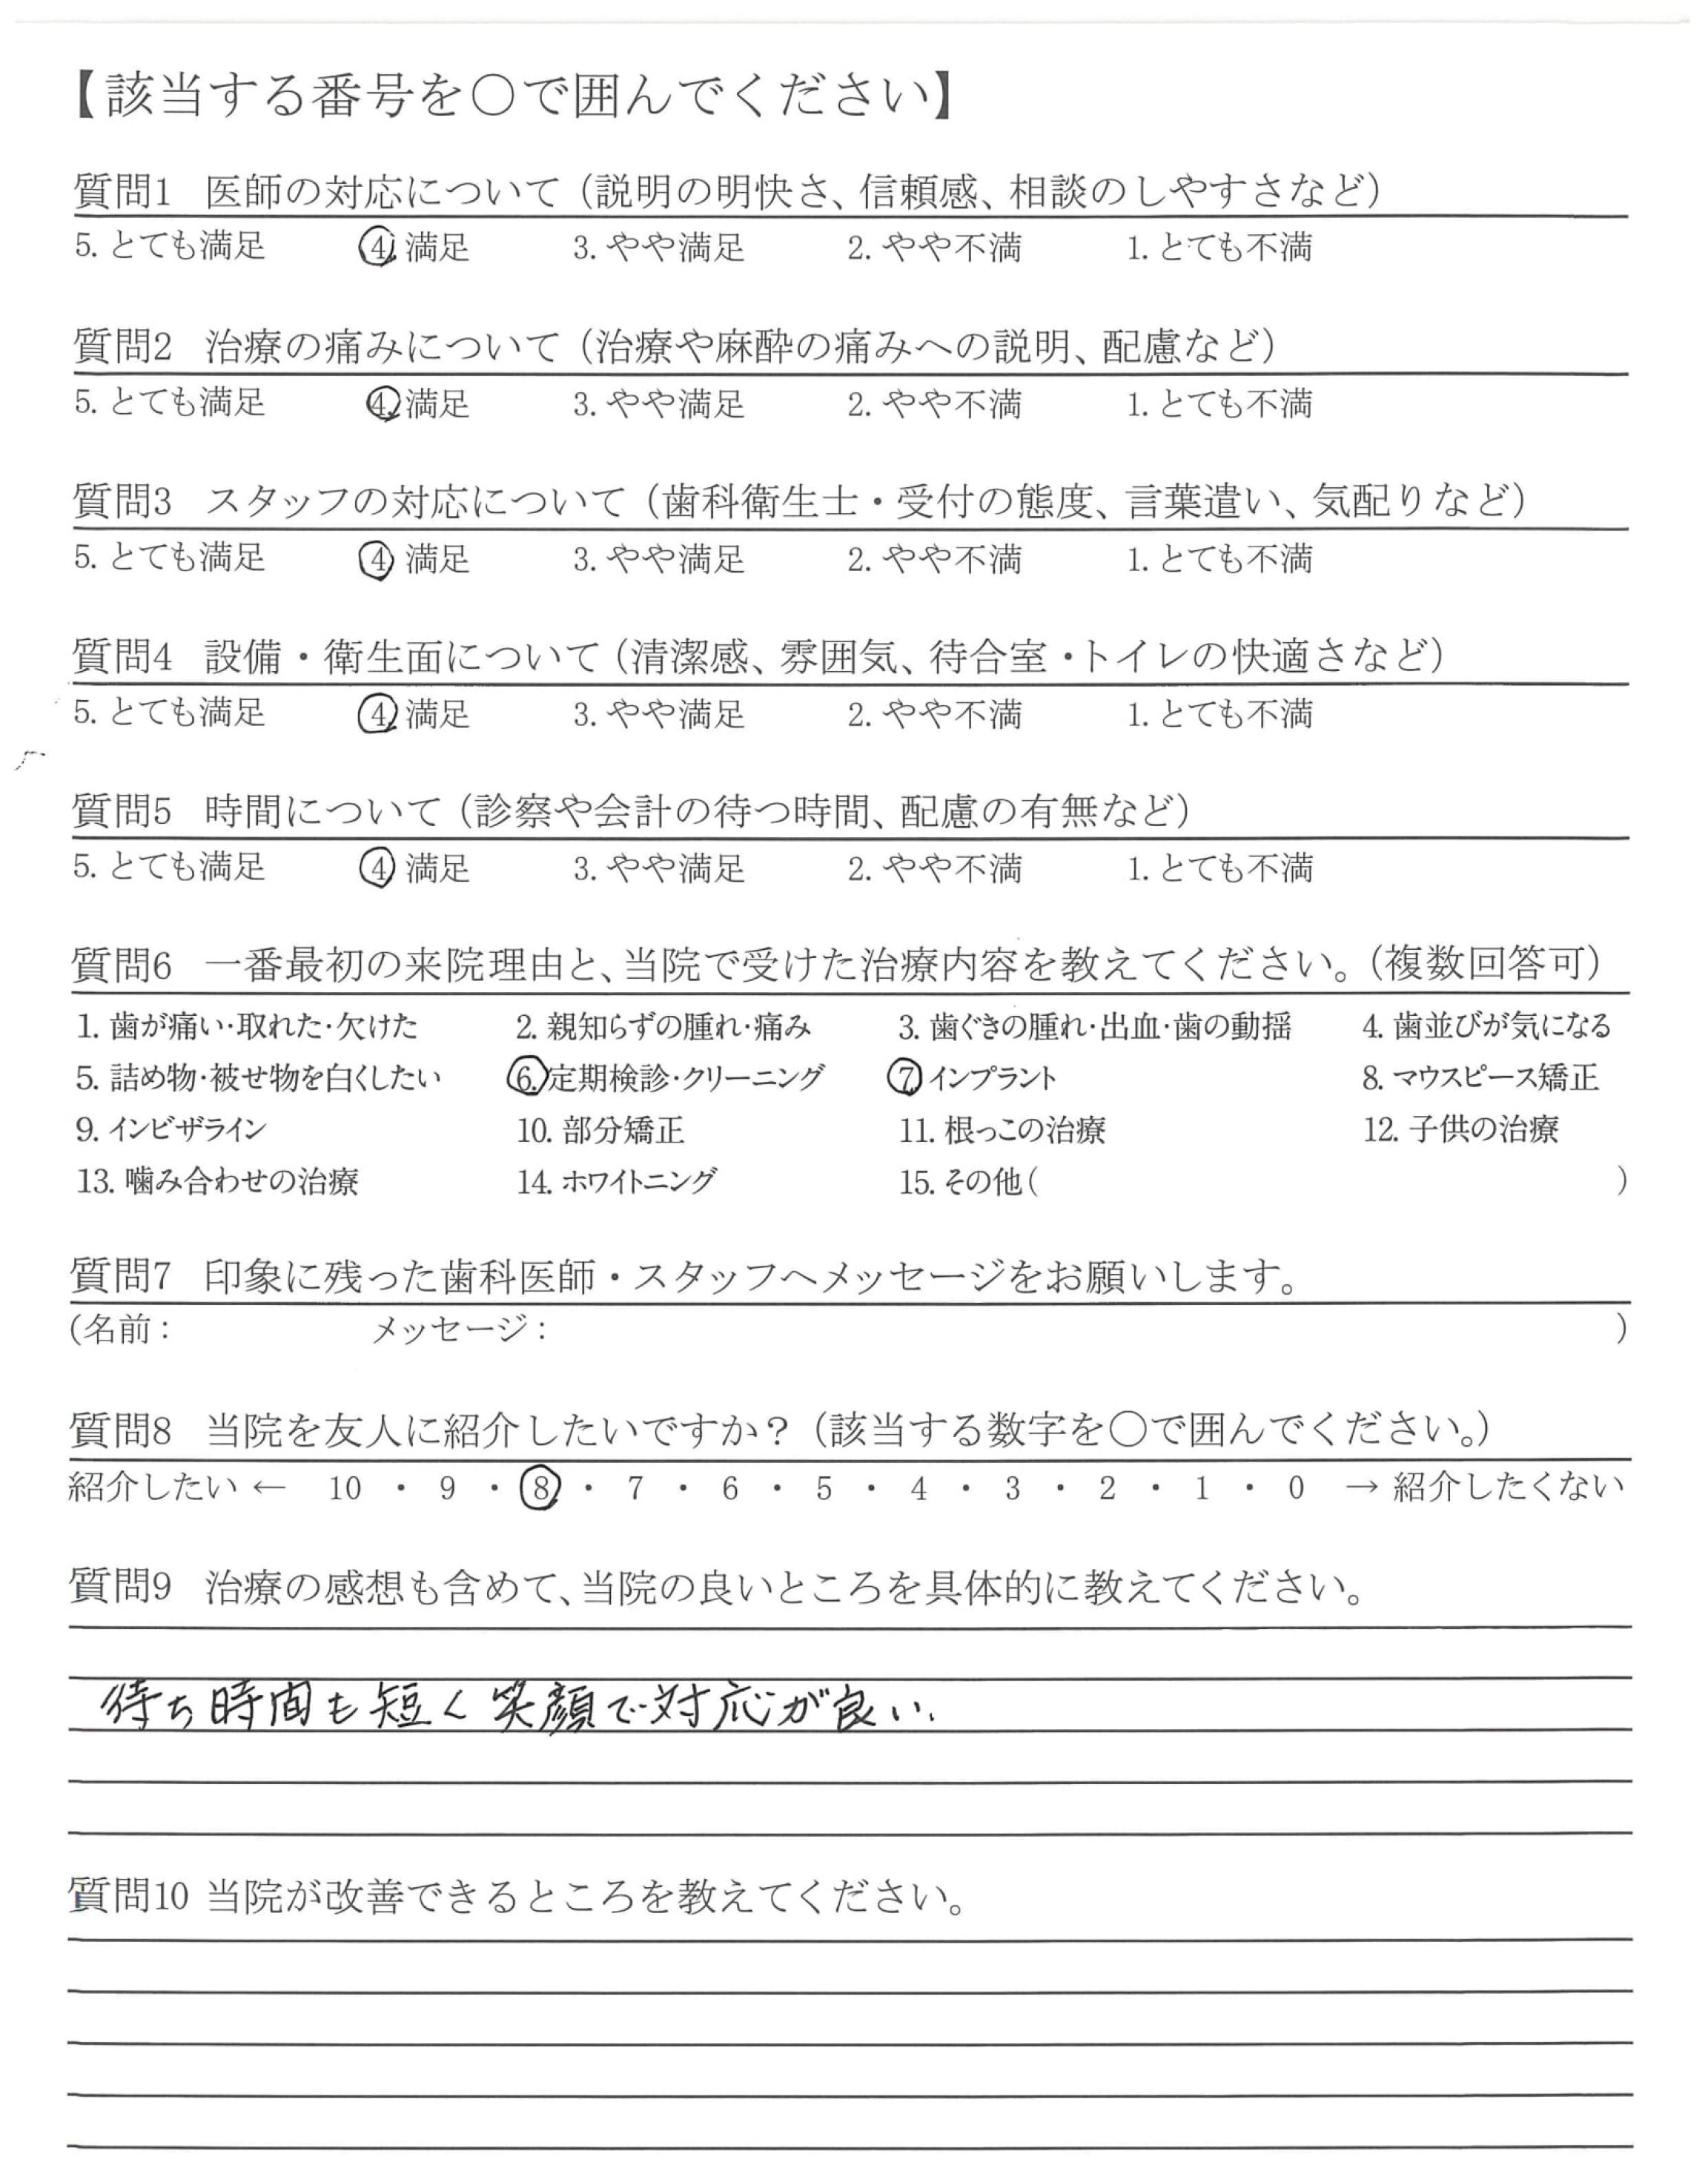 【該当する番号を○で囲んでください】
質問1 医師の対応について（説明の明快さ、信頼感、相談のしやすさなど）
5. とても満足 4. 満足 3. やや満足 2. やや不満 1. とても不満
質問2 治療の痛みについて（治療や麻酔の痛みへの説明、配慮など）
5. とても満足 4. 満足 3. やや満足 2. やや不満 1. とても不満
質問3 スタッフの対応について（歯科衛生士・受付の態度、言葉遣い、気配りなど）
5. とても満足 4. 満足 3. やや満足 2. やや不満 1. とても不満
質問4 設備・衛生面について（清潔感、雰囲気、待合室・トイレの快適さなど）
5. とても満足 4. 満足 3. やや満足 2. やや不満 1. とても不満
質問5 時間について（診察や会計の待つ時間、配慮の有無など）
5. とても満足 4. 満足 3. やや満足 2. やや不満 1. とても不満
質問6 一番最初の来院理由と、当院で受けた治療内容を教えてください。（複数回答可）
1. 歯が痛い・取れた・欠けた 2. 親知らずの腫れ・痛み 3. 歯ぐきの腫れ・出血・歯の動揺 4. 歯並びが気になる
5. 詰め物・被せ物を白くしたい 6. 定期検診・クリーニング 7. インプラント 8. マウスピース矯正
9. インビザライン 10. 部分矯正 11. 根っこの治療 12. 子供の治療
13. 噛み合わせの治療 14. ホワイトニング 15. その他（ ）
質問7 印象に残った歯科医師・スタッフへメッセージをお願いします。
（名前： メッセージ： ）
質問8 当院を友人に紹介したいですか？（該当する数字を○で囲んでください。）
紹介したい ← 10 ・ 9 ・ 8 ・ 7 ・ 6 ・ 5 ・ 4 ・ 3 ・ 2 ・ 1 ・ 0 → 紹介したくない
質問9 治療の感想も含めて、当院の良いところを具体的に教えてください。
待ち時間も短く笑顔で対応が良い.
質問10 当院が改善できるところを教えてください。